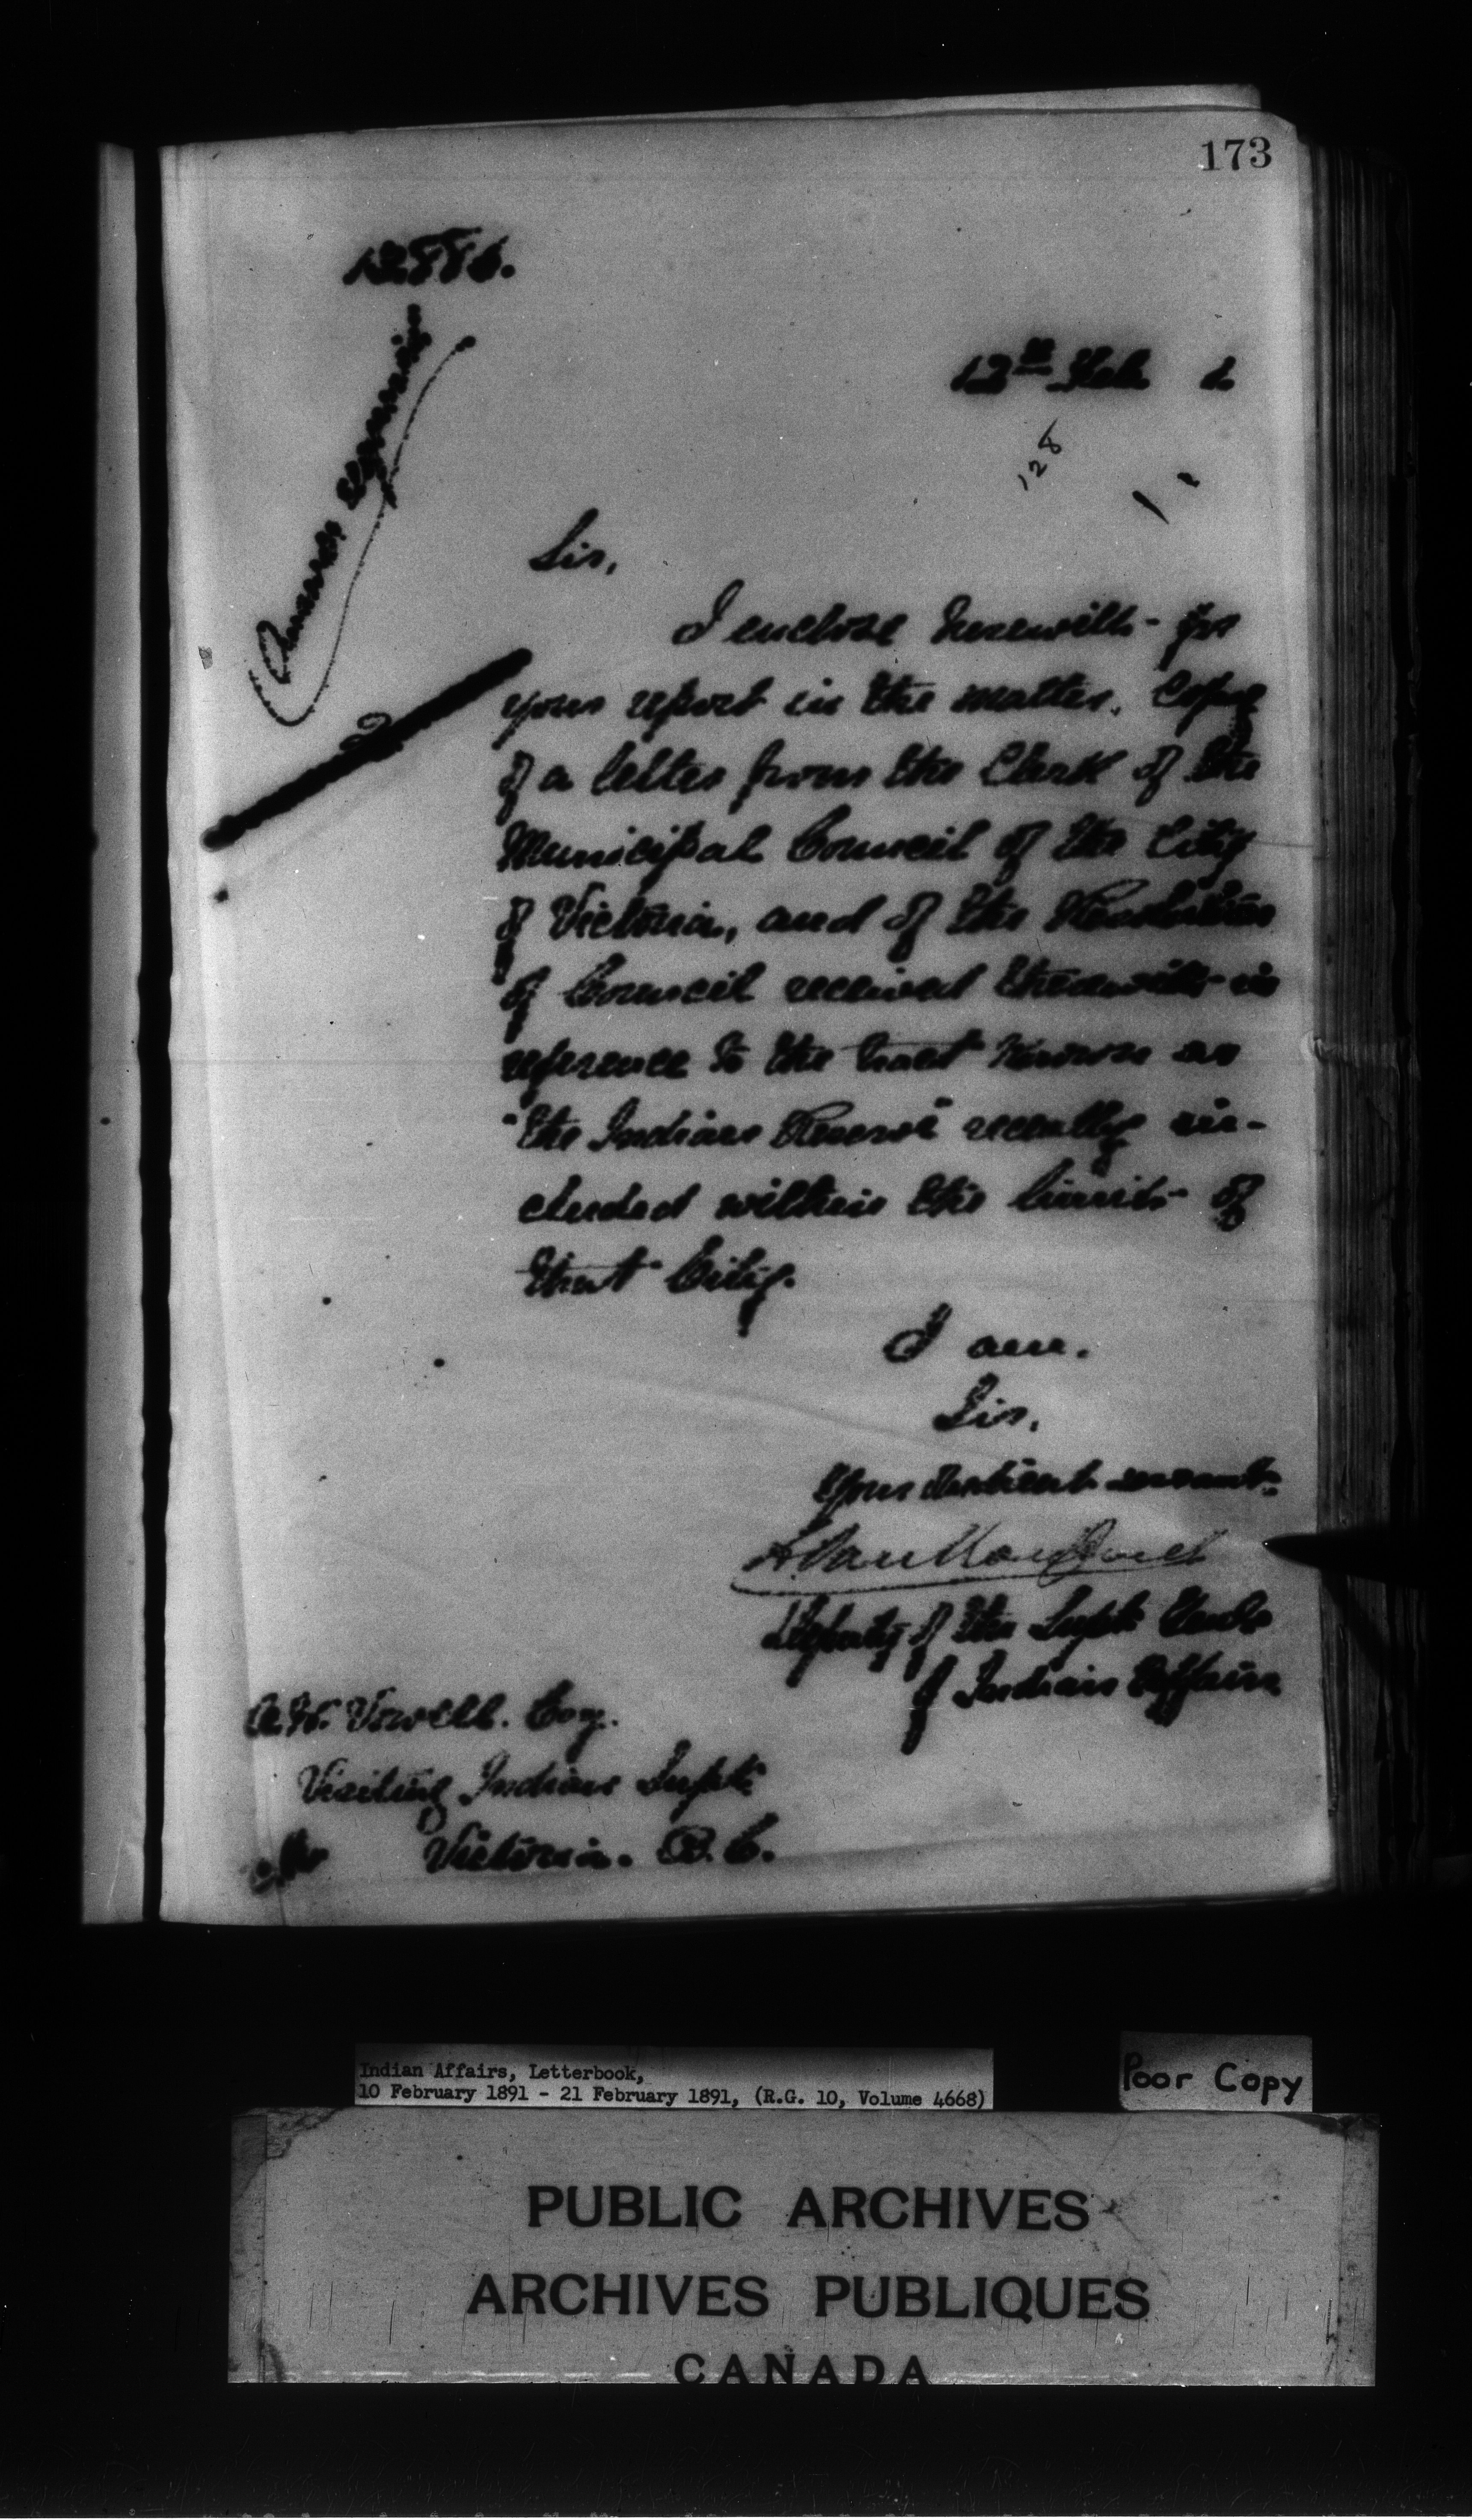 173
12886.
12th Feb 1
128
Sir,
I enclose herewith for
your report in the matter, Copy
of a letter from the Clerk of the
Municipal Council of the City
of Victoria, and of the Resolution
of Council received therewith in
reference to the tract known as
"the Indian Reserve" recently in-
cluded within the limits of
that City.
I am,
Sir,
Your obedient servant,
L. Vankoughnet
Deputy of the Supt. Genl.
of Indian Affairs
A.W. Vowell. Esq.
Visiting Indian Supt.
Victoria. B.C.
Indian Affairs, Letterbook,
10 February 1891 - 21 February 1891, (R.G. 10, Volume 4668)
Poor Copy
PUBLIC ARCHIVES
ARCHIVES PUBLIQUES
CANADA